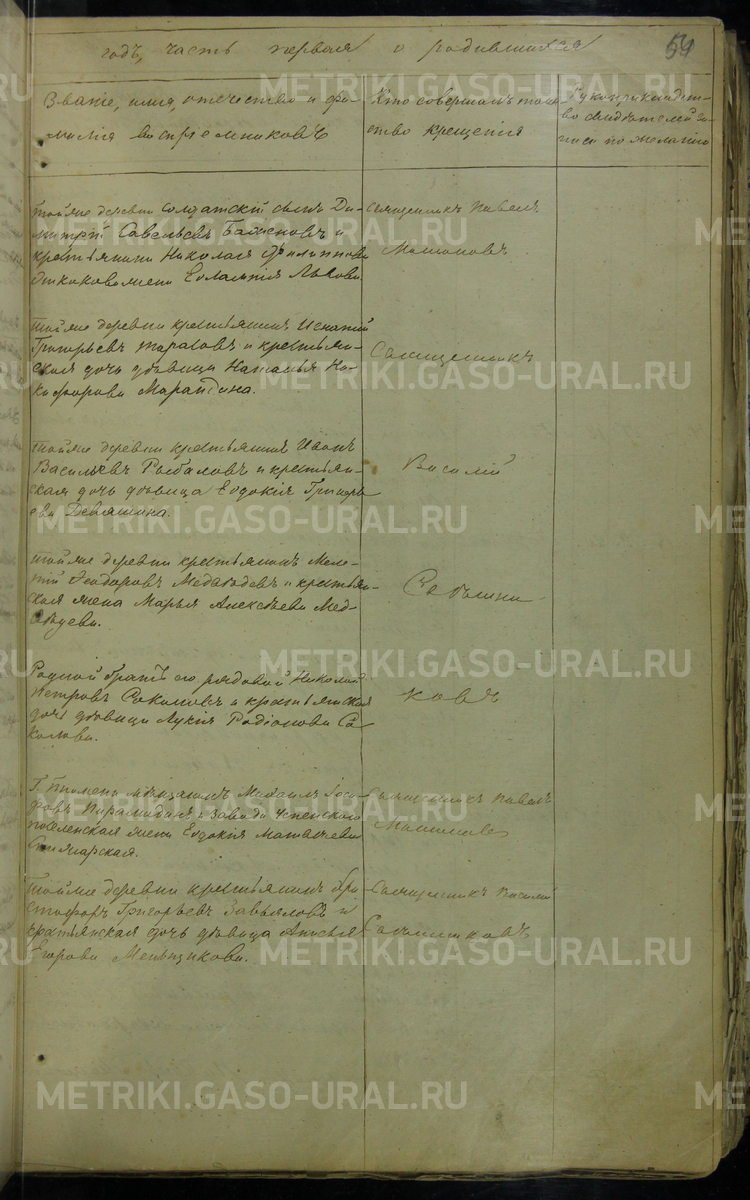 годъ, часть первая о родившихся
54
Званіе, имя, отечество и фа-
милія воспріемниковъ
Кто совершалъ таин-
ство крещенія
Рукоприкладст-
во свидѣтелей за-
писи по желанію
тойже деревни солдатскій сынъ Ди-
митрій Савельевъ и
крестьянина Николая Филиппова
жена Евлампія Львова
Священникъ Павелъ
тойже деревни крестьянинъ Игнатій
Григорьевъ Тарасовъ и крестьян-
ская дочь дѣвица Наталья Ни-
кифорова
Священникъ
тойже деревни крестьянинъ Иванъ
Васильевъ Рыбаловъ и крестьян-
ская дочь дѣвица Евдокія Григорь-
ева Девяшина.
Василій
тойже деревни крестьянинъ Меле-
тій Ѳеодоровъ Медвѣдевъ и крестьян-
ская жена Марья Алексѣева Мед-
вѣдева.
Родной братъ его рядовой Николай
Петровъ Соколовъ и крестьянская
дочь дѣвица Лукія Родіонова Со-
колова.
ковъ
Г. Тюмени мѣщанинъ Михаилъ Іоси-
фовъ и завода Успенскаго
поселенская жена Евдокія Матвѣева
Священникъ Павелъ
тойже деревни крестьянинъ Хри-
стофоръ Григорьевъ Завьяловъ и
крестьянская дочь дѣвица Анисья
Егорова Меньщикова.
Священникъ Василій
METRIKI.GASO-URAL.RU